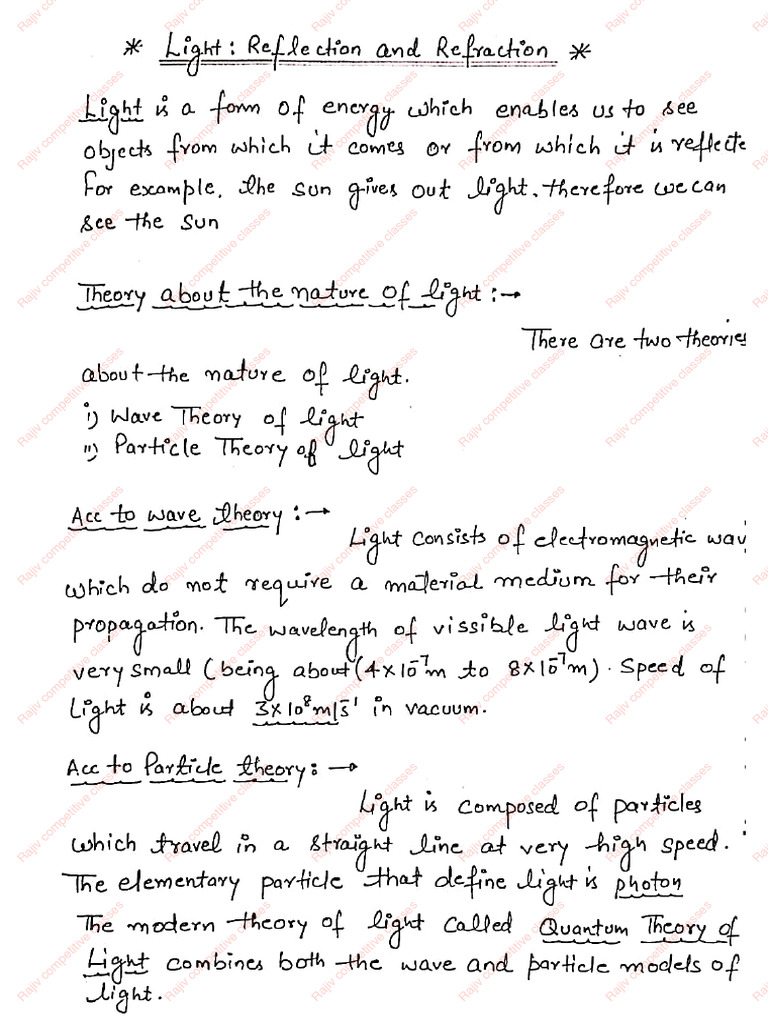 * Light: Reflection and Refraction *
Light is a form of energy which enables us to see
objects from which it comes or from which it is reflecte
For example, the sun gives out light. therefore we can
see the sun
Theory about the nature of light :→
There are two theories
about the nature of light.
i) Wave Theory of light
ii) Particle Theory of light
Acc to wave theory :→
Light consists of electromagnetic wav
which do not require a material medium for their
propagation. The wavelength of vissible light wave is
very small (being about (4×10⁻⁷m to 8×10⁻⁷m). Speed of
Light is about 3×10⁸m/s⁻¹ in vacuum.
Acc to Particle theory: →
Light is composed of particles
which travel in a straight line at very high speed.
The elementary particle that define light is photon
The modern theory of light called Quantum Theory of
Light combines both the wave and particle models of
light.
Rajiv competitive classes